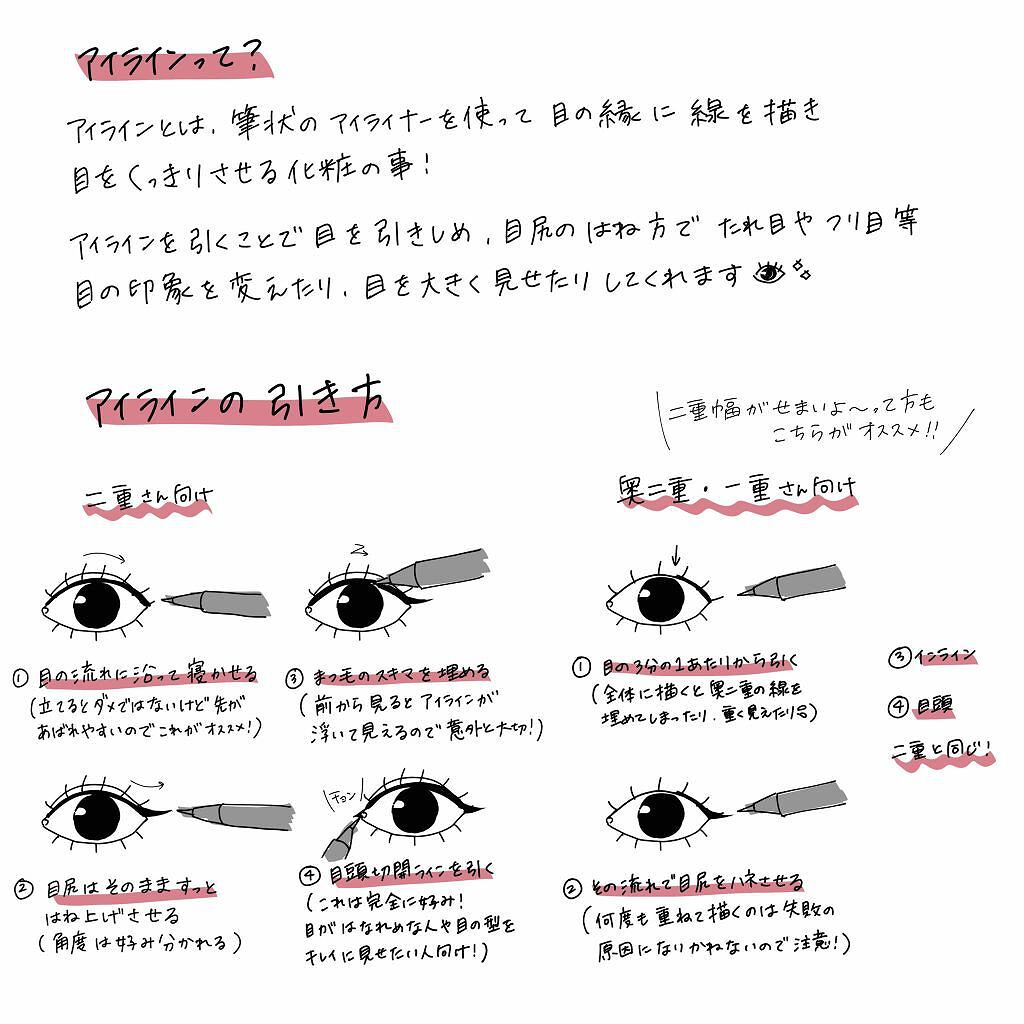 アイラインって?
アイラインとは、筆状のアイライナーを使って目の縁に線を描き
目をくっきりさせる化粧の事!
アイラインを引くことで目を引きしめ、目尻のはね方でたれ目やツリ目等
目の印象を変えたり、目を大きく見せたりしてくれます
アイラインの引き方
二重幅がせまいよ〜って方も
こちらがオススメ!!
二重さん向け
① 目の流れに沿って寝かせる
(立てるとダメではないけど先が
あばれやすいのでこれがオススメ!)
② 目尻はそのまますっと
はね上げさせる
(角度は好み分かれる)
③ まつ毛のスキマを埋める
(前から見るとアイラインが
浮いて見えるので意外と大切!)
チョン
④ 目頭切開ラインを引く
(これは完全に好み!
目がはなれめな人や目の型を
キレイに見せたい人向け!)
奥二重・一重さん向け
① 目の3分の1あたりから引く
(全体に描くと奥二重の線を
埋めてしまったり、重く見えたり)
② その流れで目尻をハネさせる
(何度も重ねて描くのは失敗の
原因になりかねないので注意!)
③ インライン
④ 目頭
二重と同じ!